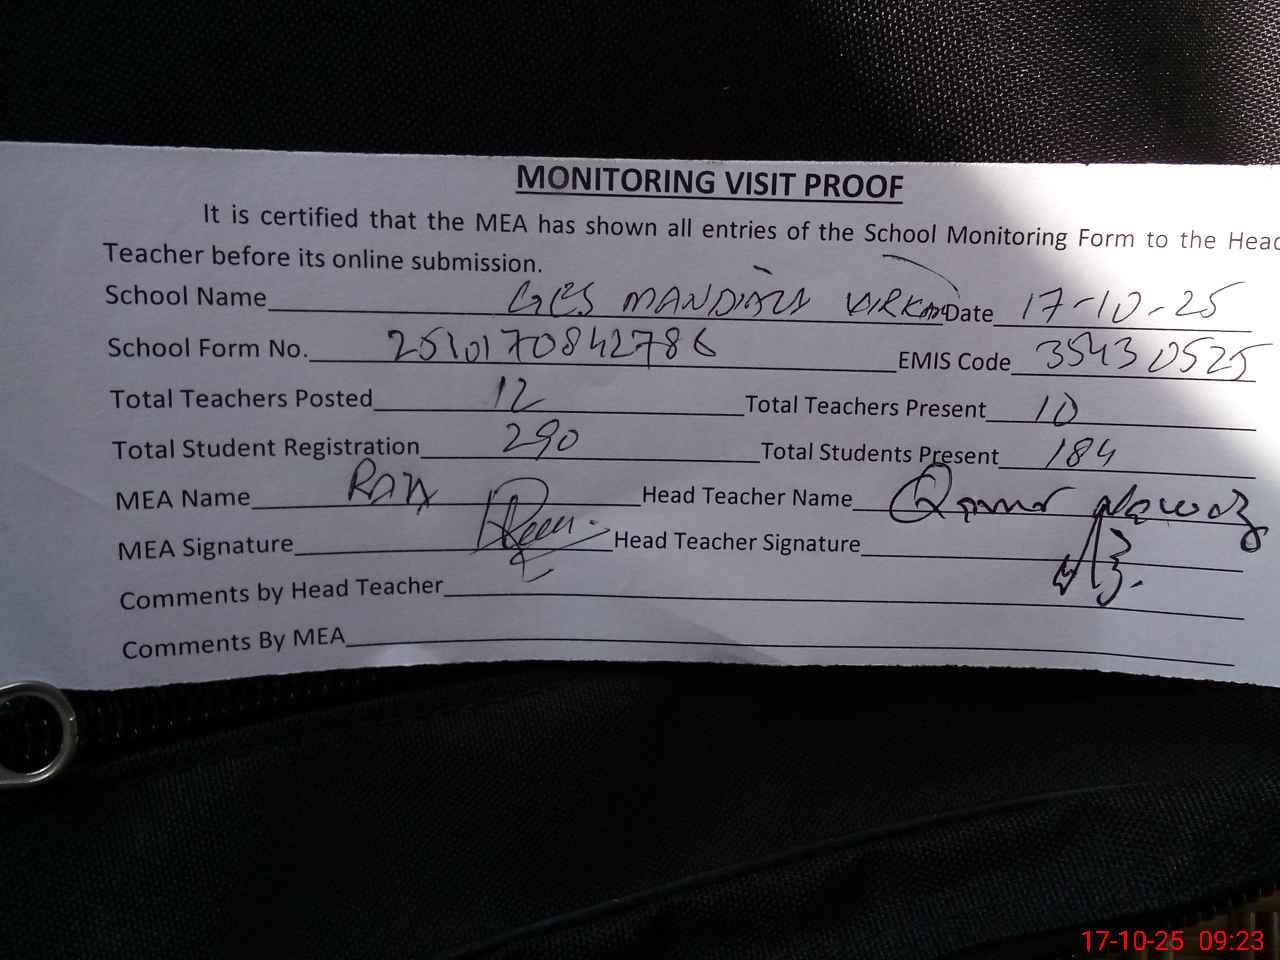 MONITORING VISIT PROOF
It is certified that the MEA has shown all entries of the School Monitoring Form to the Head
Teacher before its online submission.
School Name GES MANDIALI VIRKAN Date 17-10-25
School Form No. 2510170842786 EMIS Code 35430525
Total Teachers Posted 12 Total Teachers Present 10
Total Student Registration 290 Total Students Present 184
MEA Name Head Teacher Name Qamar Nawaz
MEA Signature Head Teacher Signature
Comments by Head Teacher
Comments By MEA
17-10-25 09:23